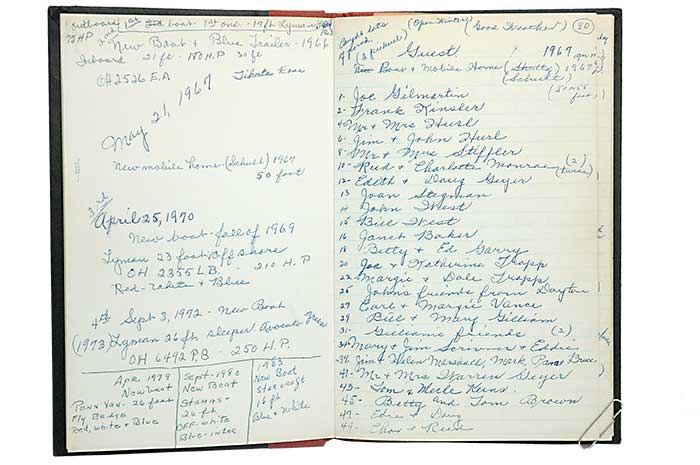 1 outboard 1st boat - 1st one - 17ft Lyman
75 H.P
New Boat & Blue Trailer - 1966
Inboard 21 ft - 150 H.P 30 ft
OH 2526 E.A
May 21, 1967
New mobile home (Schult) 1967
50 foot
3rd
April 25, 1970
New boat - fall of 1969
Lyman 23 foot off shore
OH 2355 LB. - 210 H.P
Red-White & Blue
4th Sept 3, 1972 - New Boat
(1973) Lyman 26 ft sleeper Avocado Green
OH 6492 P.B. - 250 H.P.
Apr 1979
New boat
Penn Yan - 26 feet
Fly Bridge
Red, white & Blue
Sept - 1980
New Boat
Stamas -
26 ft
Off-white
Blue-inter
1983
New Boat
Starcraft
16 ft
Blue & White
(Open Winter) (Good Weather) (80)
(2 pictures)
Guest 1967
Boat & Mobile Home (Schult) 1967
(50 x 55 foot)
1. Joe Gilmartin
2- Frank Kinsler
4- Mr & Mrs Hurl
6- Jim & John Hurl
8- Mr & Mrs Stiffler
10- Reid & Charlotte Monroe (2) (twice)
12- Edith & Doug Geyer
13 Joan Stegman
14 John West
15 Bill West
16 Janet Baker
18 Betty & Ed. Garry
20 Joe & Katherine Trapp
22 Margie & Dale Trapp
25 John's friends from Dayton
27 Earl & Margie Vance
29 Bill & Mary Gilliam
31- Gilliams friends (2)
34 Mary & Jim Scrivner & Eddie
39. Jim & Helen Marshall, Mark, Pam & Bruce
41- Mr & Mrs Warren Geyer
43- Tom & Merle Kuns.
45- Betty and Tom Brown
47- Edie & Doug
49- Char & Reid